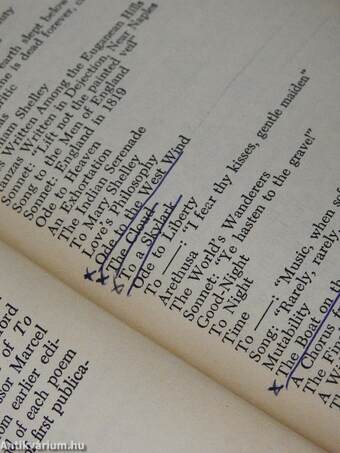 earth slept below
is dead forever, c
Written Among the Euganean Hills
Stanzas Written in Dejection, Near Naples
Sonnet: "Lift not the painted veil
Song to the Men of England
Sonnet: England in 1819
Ode to Heaven
An Exhortation
The Indian Serenade
To Mary Shelley
Love's Philosophy
Ode to the West Wind
The Cloud
To a Skylark
Ode to Liberty
To ——: "I fear thy kisses, gentle maiden"
Arethusa
The World's Wanderers
Sonnet: "Ye hasten to the grave!"
Good-Night
To Night
Time
To ——: "Music, when sof
Song: "Rarely, rarely,
Mutability
The Boat on th
A Chorus f
The Fin
A W
ord
of To
ssor Marcel
om earlier edi-
of each poem
first publica-
Antikvárium.hu